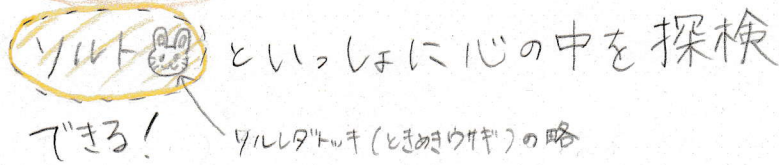 ソルト といっしょに心の中を探検
できる! ソルレダトッキ(ときめきウサギ)の略